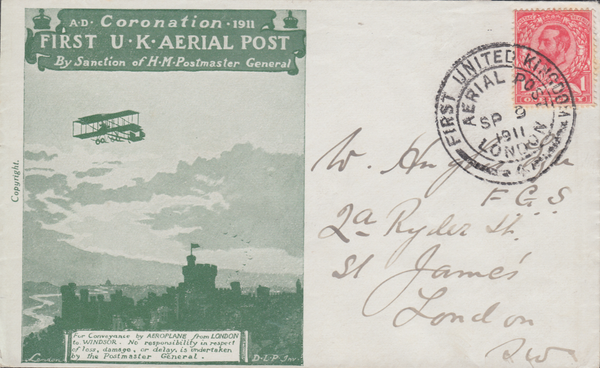 A·D· Coronation · 1911
FIRST U·K·AERIAL POST
By Sanction of H·M·Postmaster General
Copyright.
For Conveyance by AEROPLANE from LONDON
to WINDSOR. No responsibility in respect
of loss, damage, or delay, is undertaken
by the Postmaster General.
London
FIRST UNITED KINGDOM
AERIAL POST
SP 9
1911
LONDON
W.
F.G.S
2a Ryder St.
St James'
London
SW